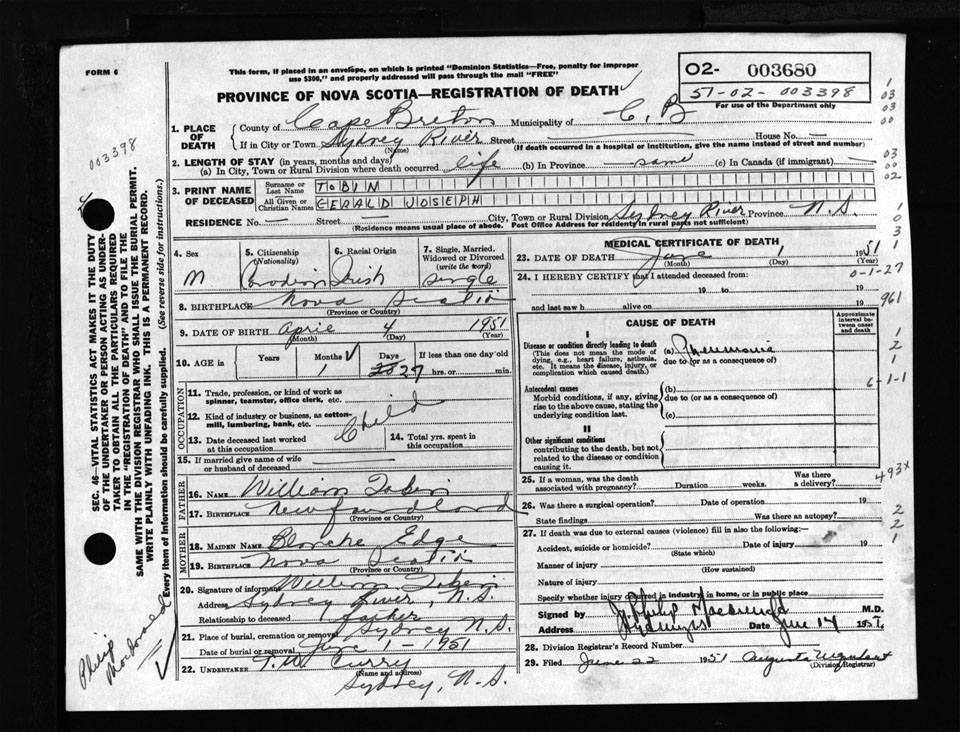 FORM 6
This form, if placed in an envelope, on which is printed "Dominion Statistics—Free, penalty for improper
use $300," and properly addressed will pass through the mail "FREE"
O2- 003680
51-02-003398
For use of the Department only
PROVINCE OF NOVA SCOTIA—REGISTRATION OF DEATH
1. PLACE OF DEATH
County of Cape Breton Municipality of C.B
If in City or Town Sydney River Street — House No. —
(Name) (If death occurred in a hospital or institution, give the name instead of street and number)
2. LENGTH OF STAY (in years, months and days)
(a) In City, Town or Rural Division where death occurred life (b) In Province same (c) In Canada (if immigrant) —
3. PRINT NAME OF DECEASED
Surname or Last Name TOBIN
All Given or Christian Names GERALD JOSEPH
RESIDENCE No. — Street — City, Town or Rural Division Sydney River Province N.S.
(Residence means usual place of abode. Post Office Address for residents in rural parts not sufficient)
4. Sex
M
5. Citizenship (Nationality)
Canadian
6. Racial Origin
Irish
7. Single, Married, Widowed or Divorced (write the word)
Single
8. BIRTHPLACE Nova Scotia
(Province or Country)
9. DATE OF BIRTH April 4 1951
(Month) (Day) (Year)
10. AGE in Years Months Days If less than one day old
1 27 hrs. or min.
OCCUPATION
11. Trade, profession, or kind of work as spinner, teamster, office clerk, etc.
12. Kind of industry or business, as cotton-mill, lumbering, bank, etc.
Child
13. Date deceased last worked at this occupation
14. Total yrs. spent in this occupation
15. If married give name of wife or husband of deceased —
FATHER
16. NAME William Tobin
17. BIRTHPLACE Newfoundland
(Province or Country)
MOTHER
18. MAIDEN NAME Blanche Edge
19. BIRTHPLACE Nova Scotia
(Province or Country)
20. Signature of informant William Tobin
Address Sydney River, N.S.
Relationship to deceased father
21. Place of burial, cremation or removal Sydney N.S.
Date of burial or removal June 1-1951
22. UNDERTAKER T.W. Curry
(Name and address)
Sydney, N.S.
MEDICAL CERTIFICATE OF DEATH
23. DATE OF DEATH June 1 1951
(Month) (Day) (Year)
24. I HEREBY CERTIFY that I attended deceased from:
19 to 19
and last saw h alive on 19
CAUSE OF DEATH
Approximate interval between onset and death
I
Disease or condition directly leading to death
(This does not mean the mode of dying, e.g., heart failure, asthenia, etc. It means the disease, injury, or complication which caused death.)
(a) Pneumonia
due to (or as a consequence of)
Antecedent causes
Morbid conditions, if any, giving rise to the above cause, stating the underlying condition last.
(b)
due to (or as a consequence of)
(c)
II
Other significant conditions contributing to the death, but not related to the disease or condition causing it.
25. If a woman, was the death associated with pregnancy? Duration weeks. Was there a delivery?
26. Was there a surgical operation? Date of operation 19
State findings Was there an autopsy?
27. If death was due to external causes (violence) fill in also the following:—
Accident, suicide or homicide? Date of injury 19
(State which)
Manner of injury
(How sustained)
Nature of injury
Specify whether injury occurred in industry, in home, or in public place
Signed by M.D.
Address Date June 14 1951
28. Division Registrar's Record Number
29. Filed June 22 1951 Augusta Urquhart
(Division Registrar)
003398
SEC. 46—VITAL STATISTICS ACT MAKES IT THE DUTY
OF THE UNDERTAKER OR PERSON ACTING AS UNDER-
TAKER TO OBTAIN ALL THE PARTICULARS REQUIRED
IN THE "REGISTRATION OF DEATH" AND TO FILE THE
SAME WITH THE DIVISION REGISTRAR WHO SHALL ISSUE THE BURIAL PERMIT.
WRITE PLAINLY WITH UNFADING INK. THIS IS A PERMANENT RECORD.
Every item of information should be carefully supplied. (See reverse side for instructions.)
Philip
1
03
00
03
00
02
1
0
3
0-1-27
961
1
2
1
6-1-1
493x
2
2
1